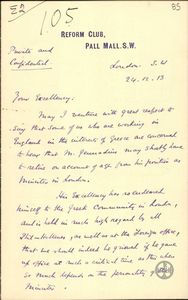 105
85
REFORM CLUB,
PALL MALL. S.W.
Private and
Confidential
London. S.W
24.12.13
Your Excellency:
May I venture with great respect to
say that some of us who are working in
England in the interests of Greece are concerned
to hear that M. Gennadius may shortly have
to retire on account of age from his position as
Minister in London.
His Excellency has endeared
himself to the Greek Community in London,
and is held in such high regard by all
Philhellenes, as well as at the Foreign Office,
that we should indeed be grieved if he gave
up office at such a critical time as this when
so much depends on the personality of
Minister